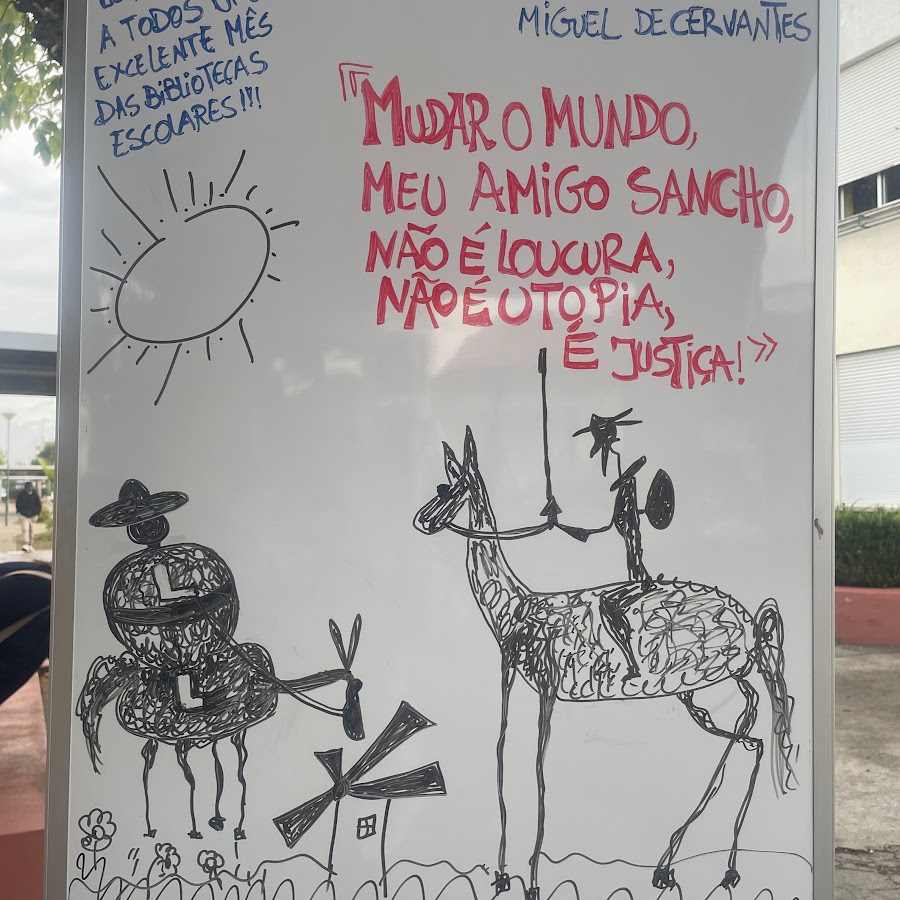 A TODOS UM
EXCELENTE MÊS
DAS BIBLIOTECAS
ESCOLARES!!!
MIGUEL DE CERVANTES
"MUDAR O MUNDO,
MEU AMIGO SANCHO,
NÃO É LOUCURA,
NÃO É UTOPIA,
É JUSTIÇA!"